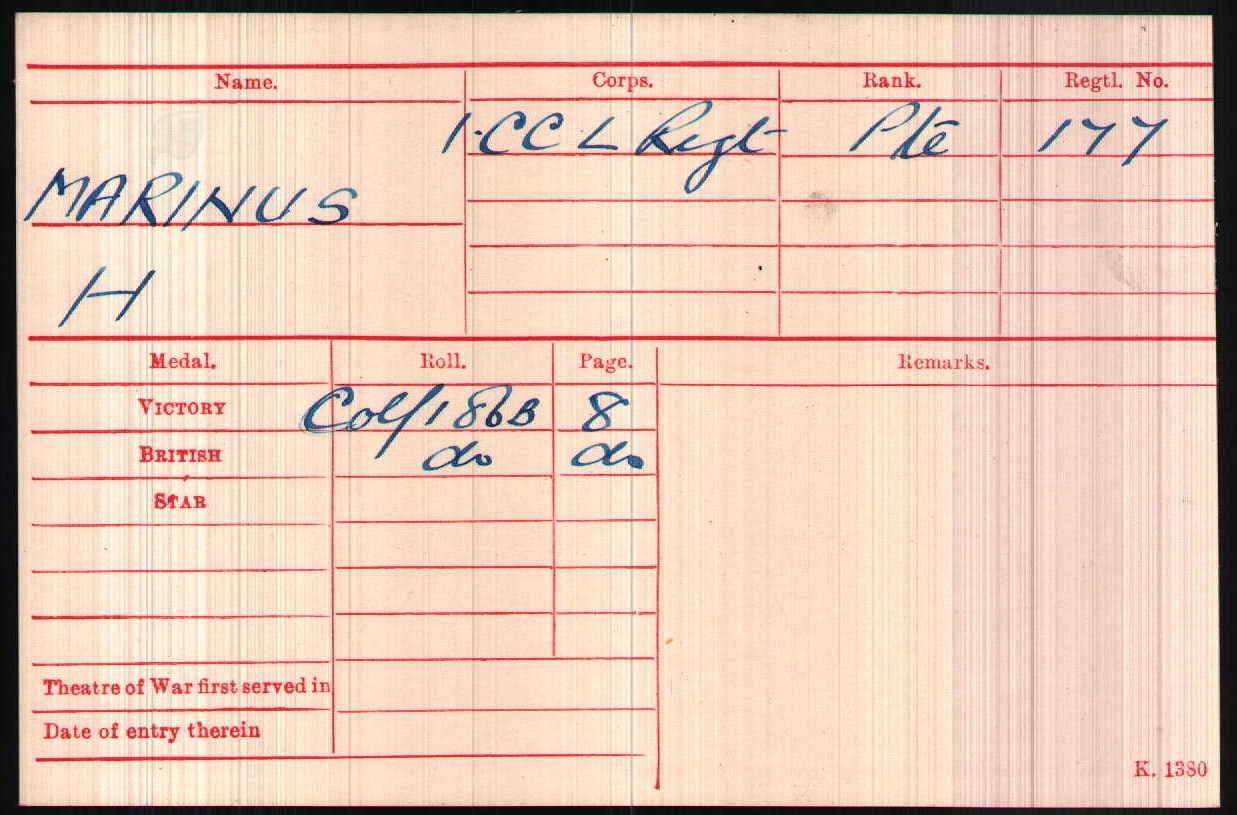 Name. Corps. Rank. Regtl. No.
1.CCL Regt Pte 177
MARINUS
H
Medal. Roll. Page. Remarks.
VICTORY Col/186B 8
BRITISH do do
STAR
Theatre of War first served in
Date of entry therein
K. 1380